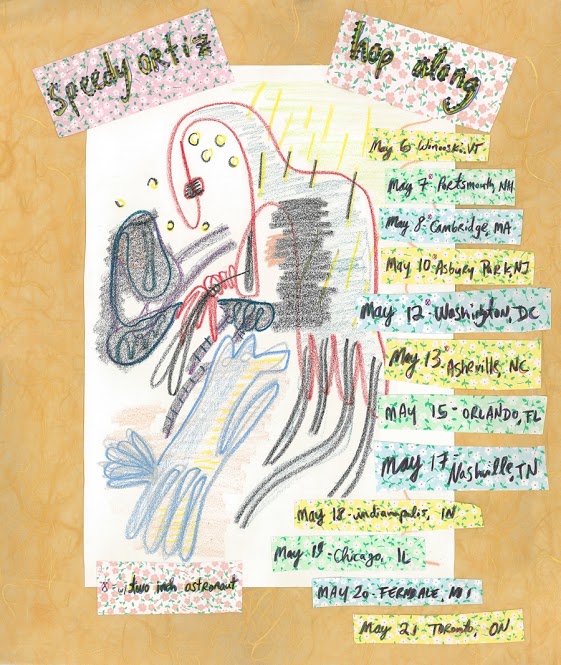 speedy ortiz
hop along
May 6 Winooski, VT
May 7* Portsmouth, NH
May 8* Cambridge, MA
May 10* Asbury Park, NJ
May 12* Washington, DC
May 13* Asheville, NC
MAY 15 - ORLANDO, FL
May 17 - Nashville, TN
May 18 - indianapolis, IN
May 19 - Chicago, IL
MAY 20 - FERNDALE, MI
May 21 Toronto, ON
* - w/ two inch astronaut